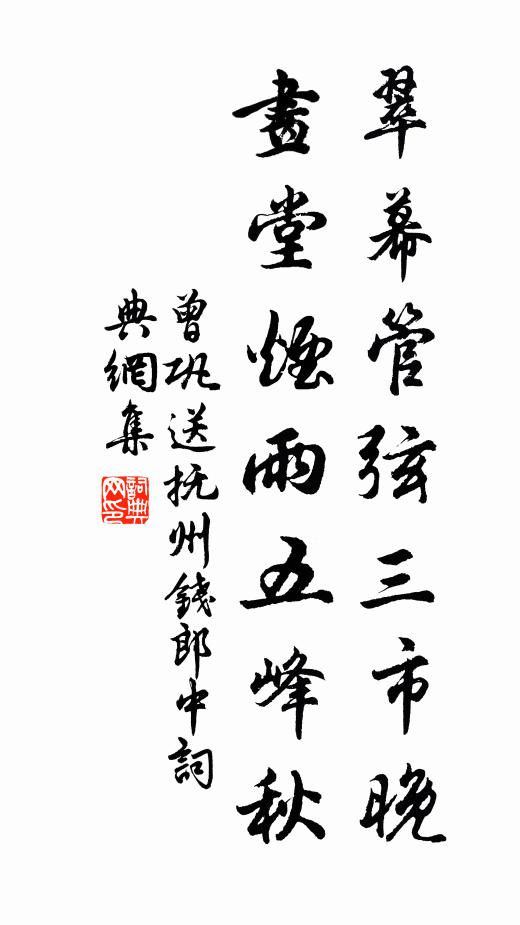 翠幕管弦三市晚
畫堂煙雨五峰秋
曾巩送抚州錢郎中詞
典網集
詞典网印